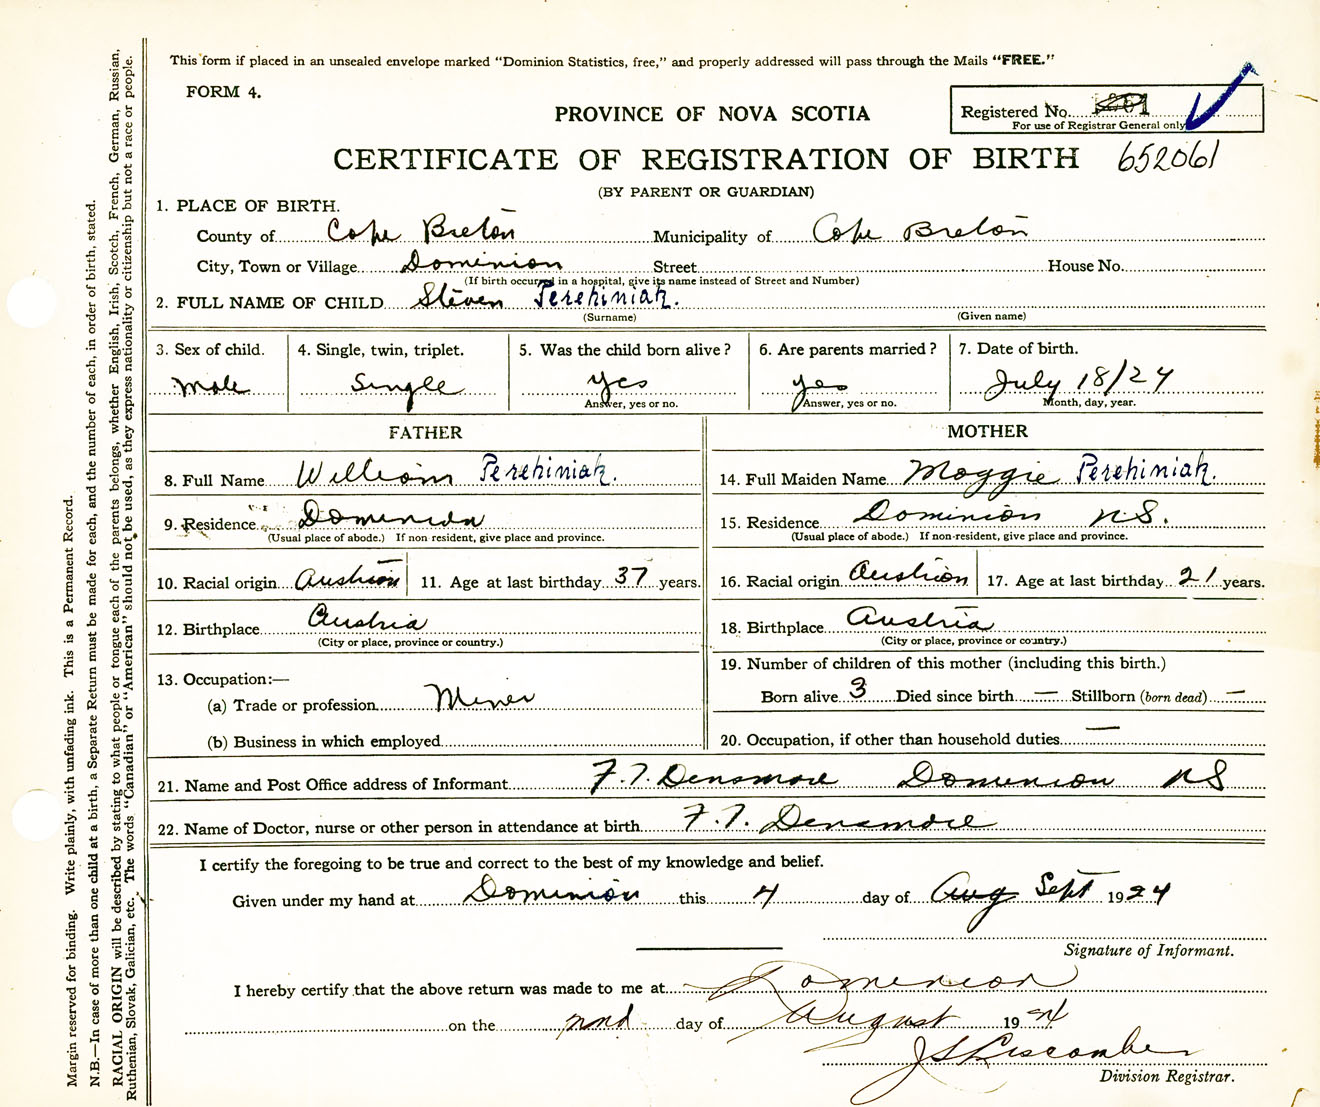 This form if placed in an unsealed envelope marked "Dominion Statistics, free," and properly addressed will pass through the Mails "FREE."
FORM 4.
PROVINCE OF NOVA SCOTIA
Registered No.
For use of Registrar General only
CERTIFICATE OF REGISTRATION OF BIRTH 652061
(BY PARENT OR GUARDIAN)
1. PLACE OF BIRTH.
County of Cape Breton Municipality of Cape Breton
City, Town or Village Dominion Street House No.
(If birth occurred in a hospital, give its name instead of Street and Number)
2. FULL NAME OF CHILD Steven Perehiniak.
(Surname) (Given name)
3. Sex of child. 4. Single, twin, triplet. 5. Was the child born alive? 6. Are parents married? 7. Date of birth.
Male Single yes yes July 18/24
Answer, yes or no. Answer, yes or no. Month, day, year.
FATHER
8. Full Name William Perehiniak.
9. Residence Dominion
(Usual place of abode.) If non-resident, give place and province.
10. Racial origin Austrian 11. Age at last birthday 37 years.
12. Birthplace Austria
(City or place, province or country.)
13. Occupation:—
(a) Trade or profession Miner
(b) Business in which employed
MOTHER
14. Full Maiden Name Maggie Perehiniak.
15. Residence Dominion NS.
(Usual place of abode.) If non-resident, give place and province.
16. Racial origin Austrian 17. Age at last birthday 21 years.
18. Birthplace Austria
(City or place, province or country.)
19. Number of children of this mother (including this birth.)
Born alive 3 Died since birth — Stillborn (born dead) —
20. Occupation, if other than household duties —
21. Name and Post Office address of Informant F. T. Densmore Dominion NS
22. Name of Doctor, nurse or other person in attendance at birth F. T. Densmore
I certify the foregoing to be true and correct to the best of my knowledge and belief.
Given under my hand at Dominion this 4 day of Aug Sept 1924
Signature of Informant.
I hereby certify that the above return was made to me at Dominion
on the day of August 1924
Division Registrar.
Margin reserved for binding. Write plainly, with unfading ink. This is a Permanent Record.
N.B.—In case of more than one child at a birth, a Separate Return must be made for each, and the number of each, in order of birth, stated.
RACIAL ORIGIN will be described by stating to what people or tongue each of the parents belongs, whether English, Irish, Scotch, French, German, Russian,
Ruthenian, Slovak, Galician, etc. The words "Canadian" or "American" should not be used, as they express nationality or citizenship but not a race or people.